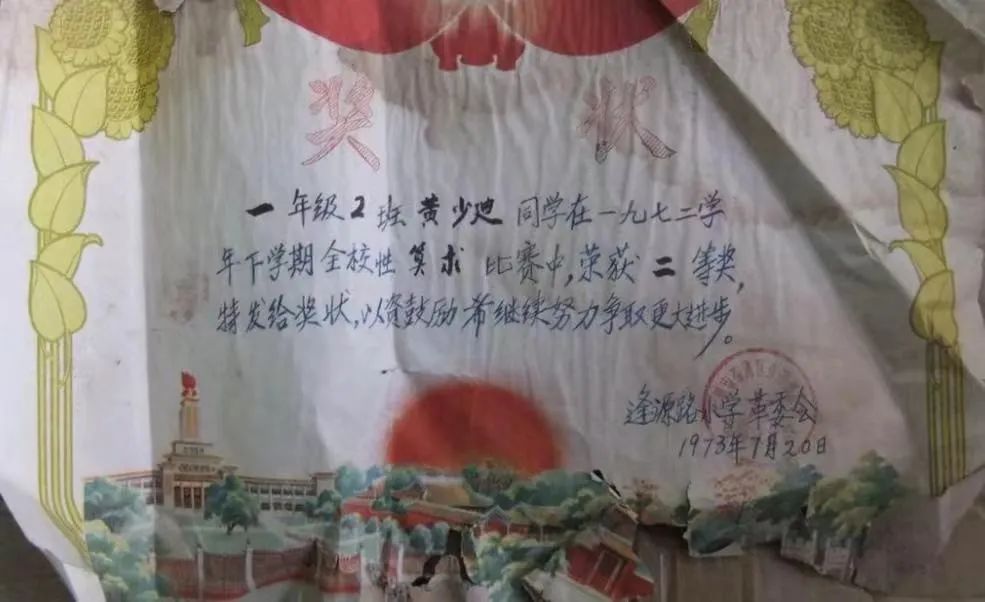 奖状
一年级2班黄少池同学在一九七二学
年下学期全校性算术比赛中,荣获二等奖,
特发给奖状,以资鼓励希继续努力争取更大进步。
逢源路小学革委会
1973年7月20日